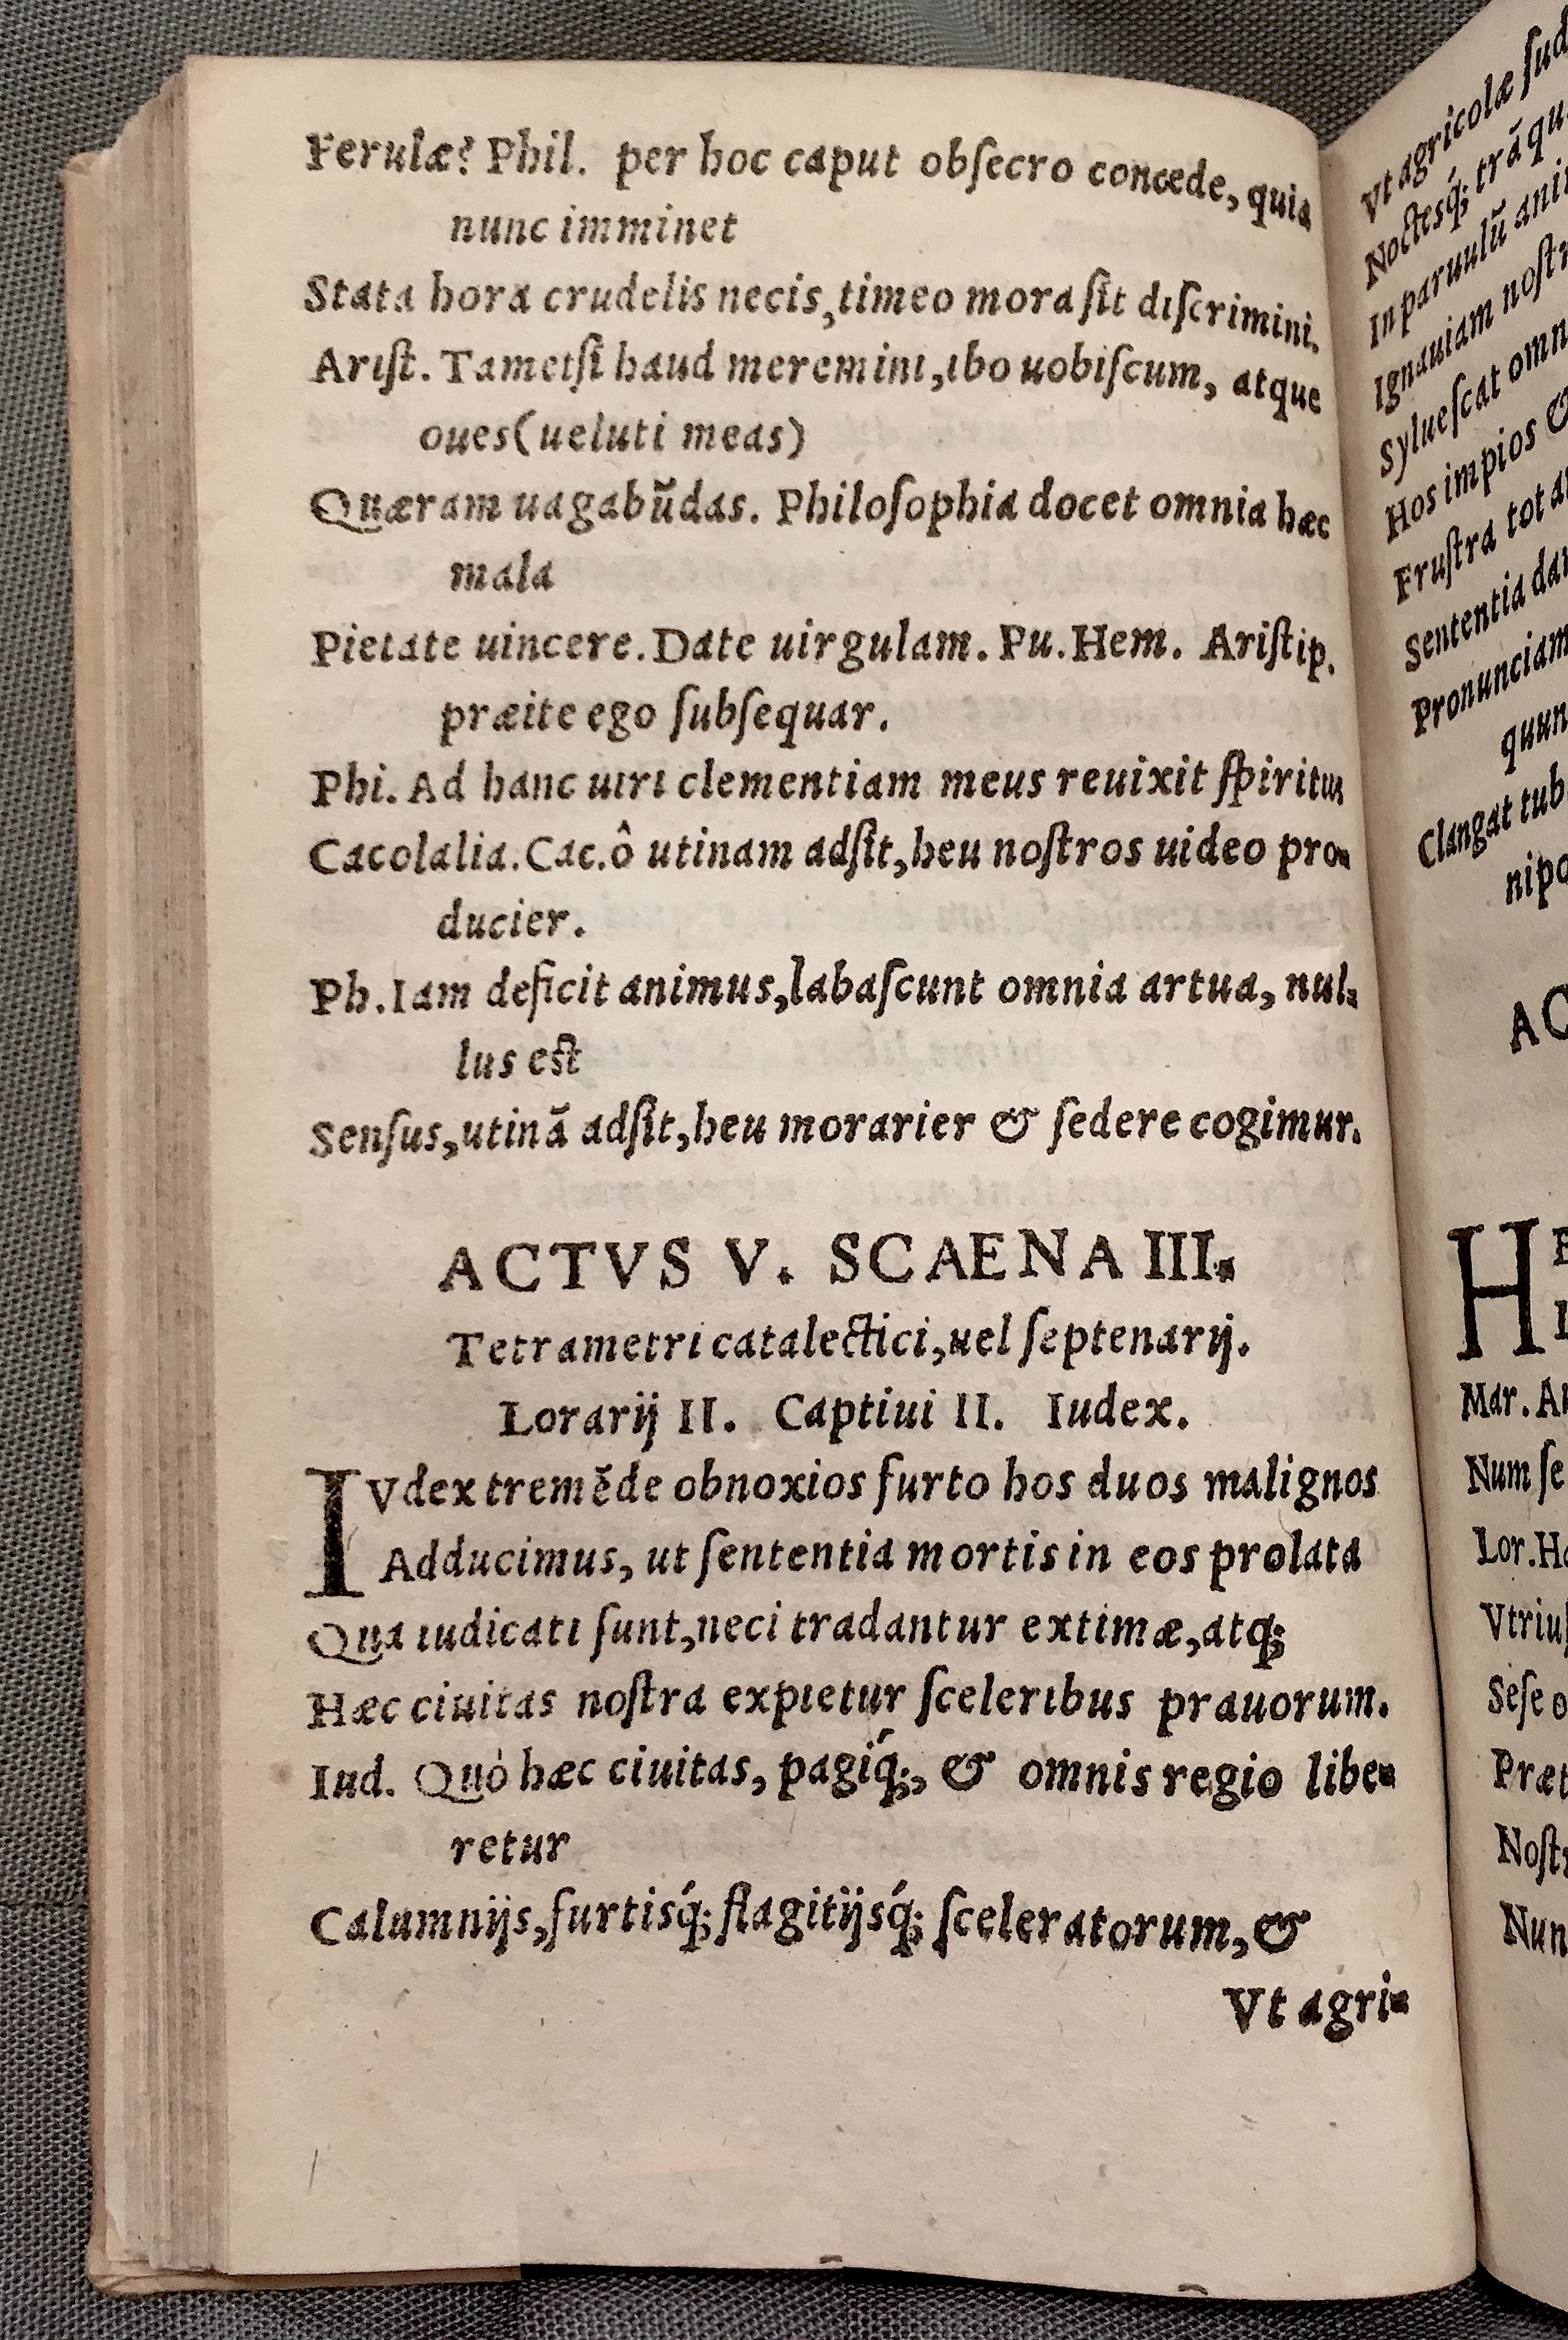 Ferulæ? Phil. per hoc caput obſecro concede, quia
nunc imminet
Stata hora crudelis necis, timeo mora ſit diſcrimini.
Ariſt. Tametſi haud meremini, ibo uobiſcum, atque
oues (ueluti meas)
Quæram uagabūdas. Philoſophia docet omnia hæc
mala
Pietate uincere. Date uirgulam. Pu. Hem. Ariſtip.
præite ego ſubſequar.
Phi. Ad hanc uiri clementiam meus reuixit ſpiritus
Cacolalia. Cac. ô utinam adſit, heu noſtros uideo pro-
ducier.
Ph. Iam deficit animus, labaſcunt omnia artua, nul-
lus eſt
Senſus, utinā adſit, heu morarier & ſedere cogimur.
ACTVS V. SCAENA III.
Tetrametri catalectici, uel ſeptenarij.
Lorarij II. Captiui II. Iudex.
IVdex tremēde obnoxios furto hos duos malignos
Adducimus, ut ſententia mortis in eos prolata
Qua iudicati ſunt, neci tradantur extimæ, atq;
Hæc ciuitas noſtra expietur ſceleribus prauorum.
Iud. Quò hæc ciuitas, pagiq́;, & omnis regio libe-
retur
Calumnijs, furtisq́; flagitijsq́; ſceleratorum, &
Vt agri-
Vt agricolæ ſud
Noctesq́; trāqu
In paruulū ani
Ignauiam noſtr
Sylueſcat omn
Hos impios &
Fruſtra tot a
Sententia da
Pronunciam
quun
Clangat tub
nipo
AC
H
Mar. A
Num ſe
Lor. H
Vtriuſ
Seſe o
Præt
Noſtr
Nun